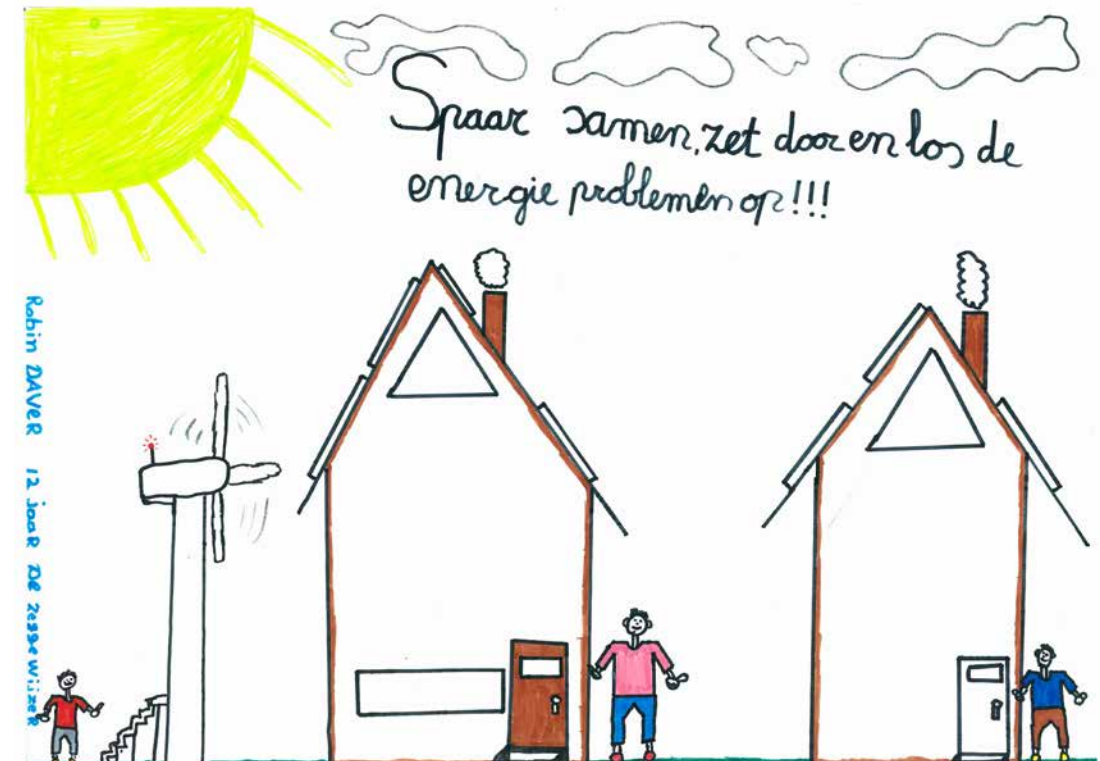 Spaar samen, zet door en los de
energie problemen op!!!
Robin DAVER 12 jaar De zessewijzer